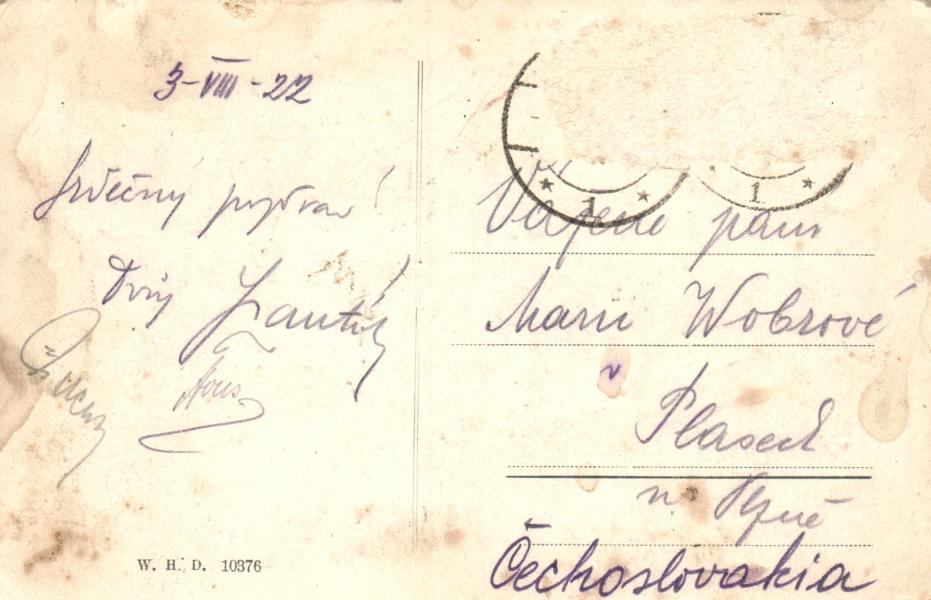 3-VIII-22
Srdečný pozdrav!
Tvůj Frantík
W. H. D. 10376
1 1
Vážené paní
Marii Wobrové
v
Plasech
u Plzně
Čechoslovakia